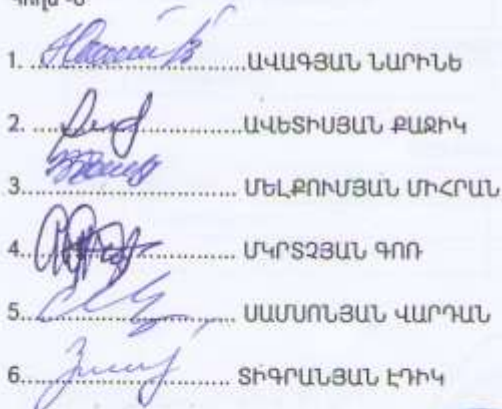 1. ........................ԱՎԱԳՅԱՆ ՆԱՐԻՆԵ
2. ........................ԱՎԵՏԻՍՅԱՆ ՔԱՋԻԿ
3........................ ՄԵԼՔՈՒՄՅԱՆ ՄԻՀՐԱՆ
4........................ ՄԿՐՏՉՅԱՆ ԳՈՌ
5........................ ՍԱՄՍՈՆՅԱՆ ՎԱՐԴԱՆ
6........................ ՏԻԳՐԱՆՅԱՆ ԷԴԻԿ